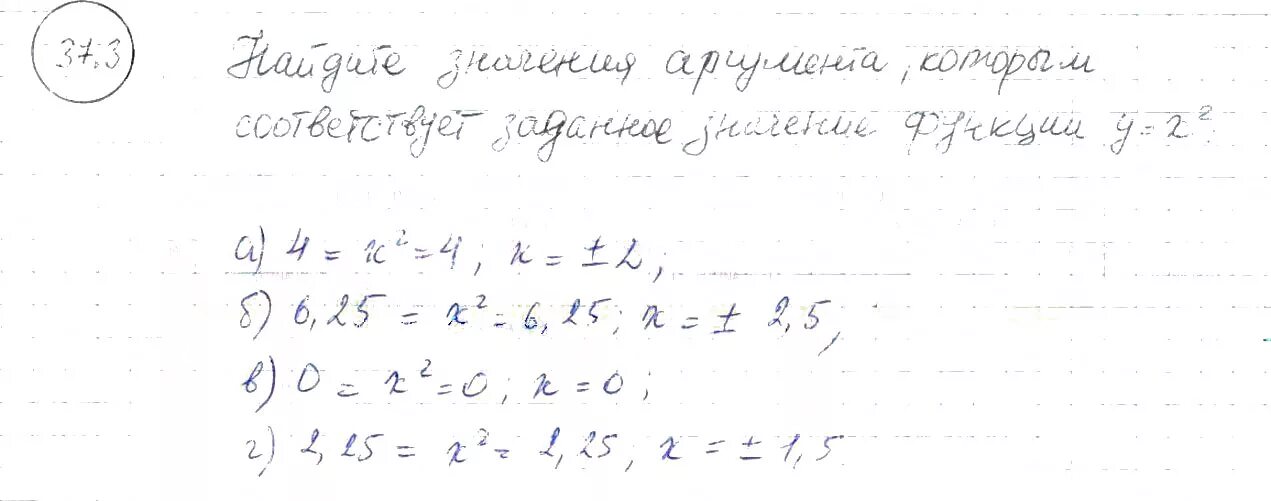 37.3
Найдите значения аргумента, которым
соответствует заданное значение функции y = x²:
а) 4 = x² = 4; x = ± 2;
б) 6,25 = x² = 6,25; x = ± 2,5;
в) 0 = x² = 0; x = 0;
г) 2,25 = x² = 2,25; x = ± 1,5